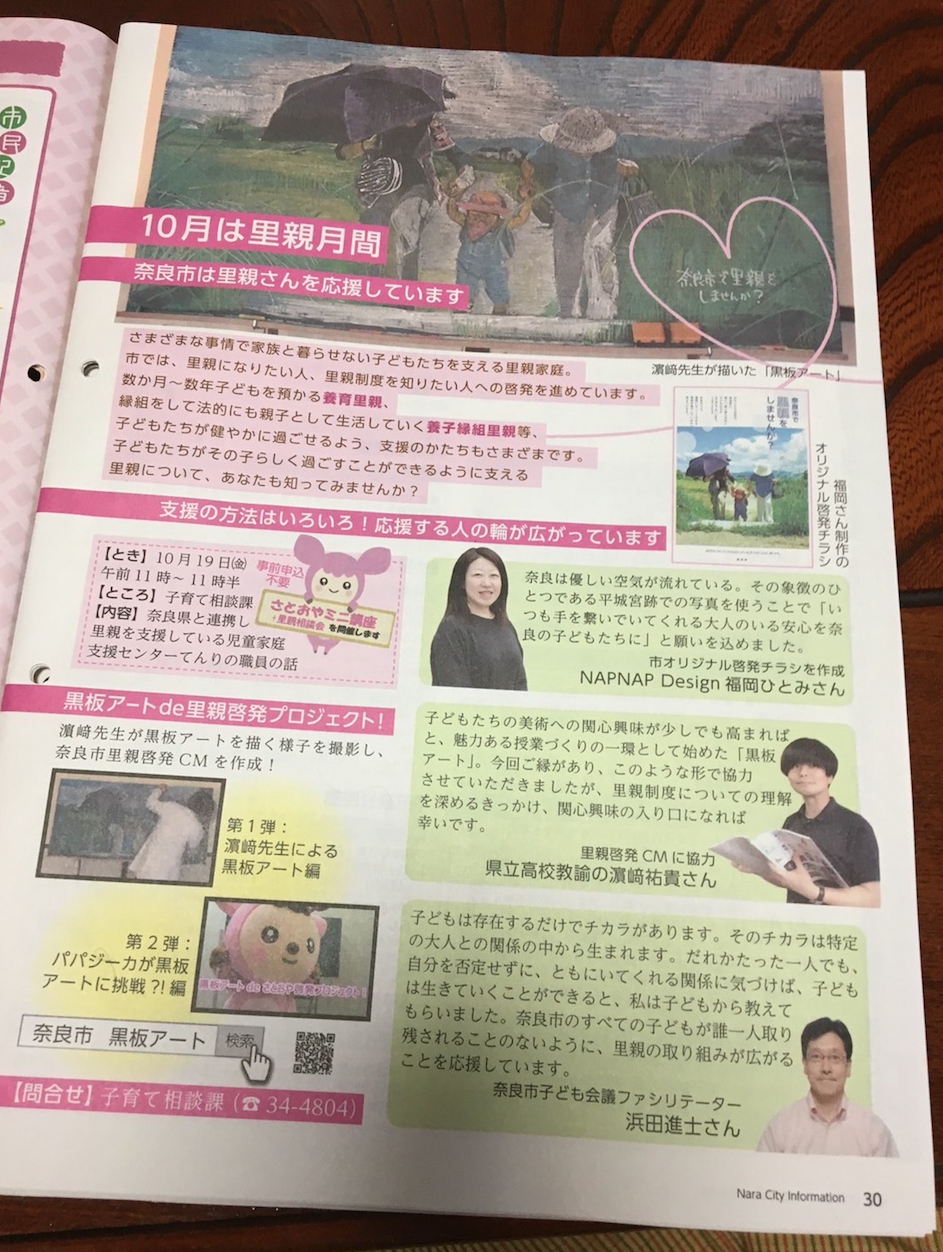 市
民
記
者
10月は里親月間
奈良市は里親さんを応援しています
奈良市で里親を
しませんか?
濵﨑先生が描いた「黒板アート」
さまざまな事情で家族と暮らせない子どもたちを支える里親家庭。
市では、里親になりたい人、里親制度を知りたい人への啓発を進めています。
数か月〜数年子どもを預かる養育里親、
縁組をして法的にも親子として生活していく養子縁組里親等、
子どもたちが健やかに過ごせるよう、支援のかたちもさまざまです。
子どもたちがその子らしく過ごすことができるように支える
里親について、あなたも知ってみませんか?
奈良市で
里親を
しませんか?
福岡さん制作の
オリジナル啓発チラシ
支援の方法はいろいろ!応援する人の輪が広がっています
【とき】10月19日㈮
午前11時〜11時半
【ところ】子育て相談課
【内容】奈良県と連携し
里親を支援している児童家庭
支援センターてんりの職員の話
事前申込
不要
さとおやミニ講座
+里親相談会 を開催します
奈良は優しい空気が流れている。その象徴のひ
とつである平城宮跡での写真を使うことで「い
つも手を繋いでいてくれる大人のいる安心を奈
良の子どもたちに」と願いを込めました。
市オリジナル啓発チラシを作成
NAPNAP Design 福岡ひとみさん
黒板アートde里親啓発プロジェクト!
濵﨑先生が黒板アートを描く様子を撮影し、
奈良市里親啓発CMを作成!
第1弾:
濵﨑先生による
黒板アート編
第2弾:
パパジーカが黒板
アートに挑戦?!編
黒板アート de さとおや啓発プロジェクト!
奈良市 黒板アート 検索
【問合せ】子育て相談課(☎34-4804)
子どもたちの美術への関心興味が少しでも高まれば
と、魅力ある授業づくりの一環として始めた「黒板
アート」。今回ご縁があり、このような形で協力
させていただきましたが、里親制度についての理解
を深めるきっかけ、関心興味の入り口になれば
幸いです。
里親啓発CMに協力
県立高校教諭の濵﨑祐貴さん
子どもは存在するだけでチカラがあります。そのチカラは特定
の大人との関係の中から生まれます。だれかたった一人でも、
自分を否定せずに、ともにいてくれる関係に気づけば、子ども
は生きていくことができると、私は子どもから教えて
もらいました。奈良市のすべての子どもが誰一人取り
残されることのないように、里親の取り組みが広がる
ことを応援しています。
奈良市子ども会議ファシリテーター
浜田進士さん
Nara City Information 30